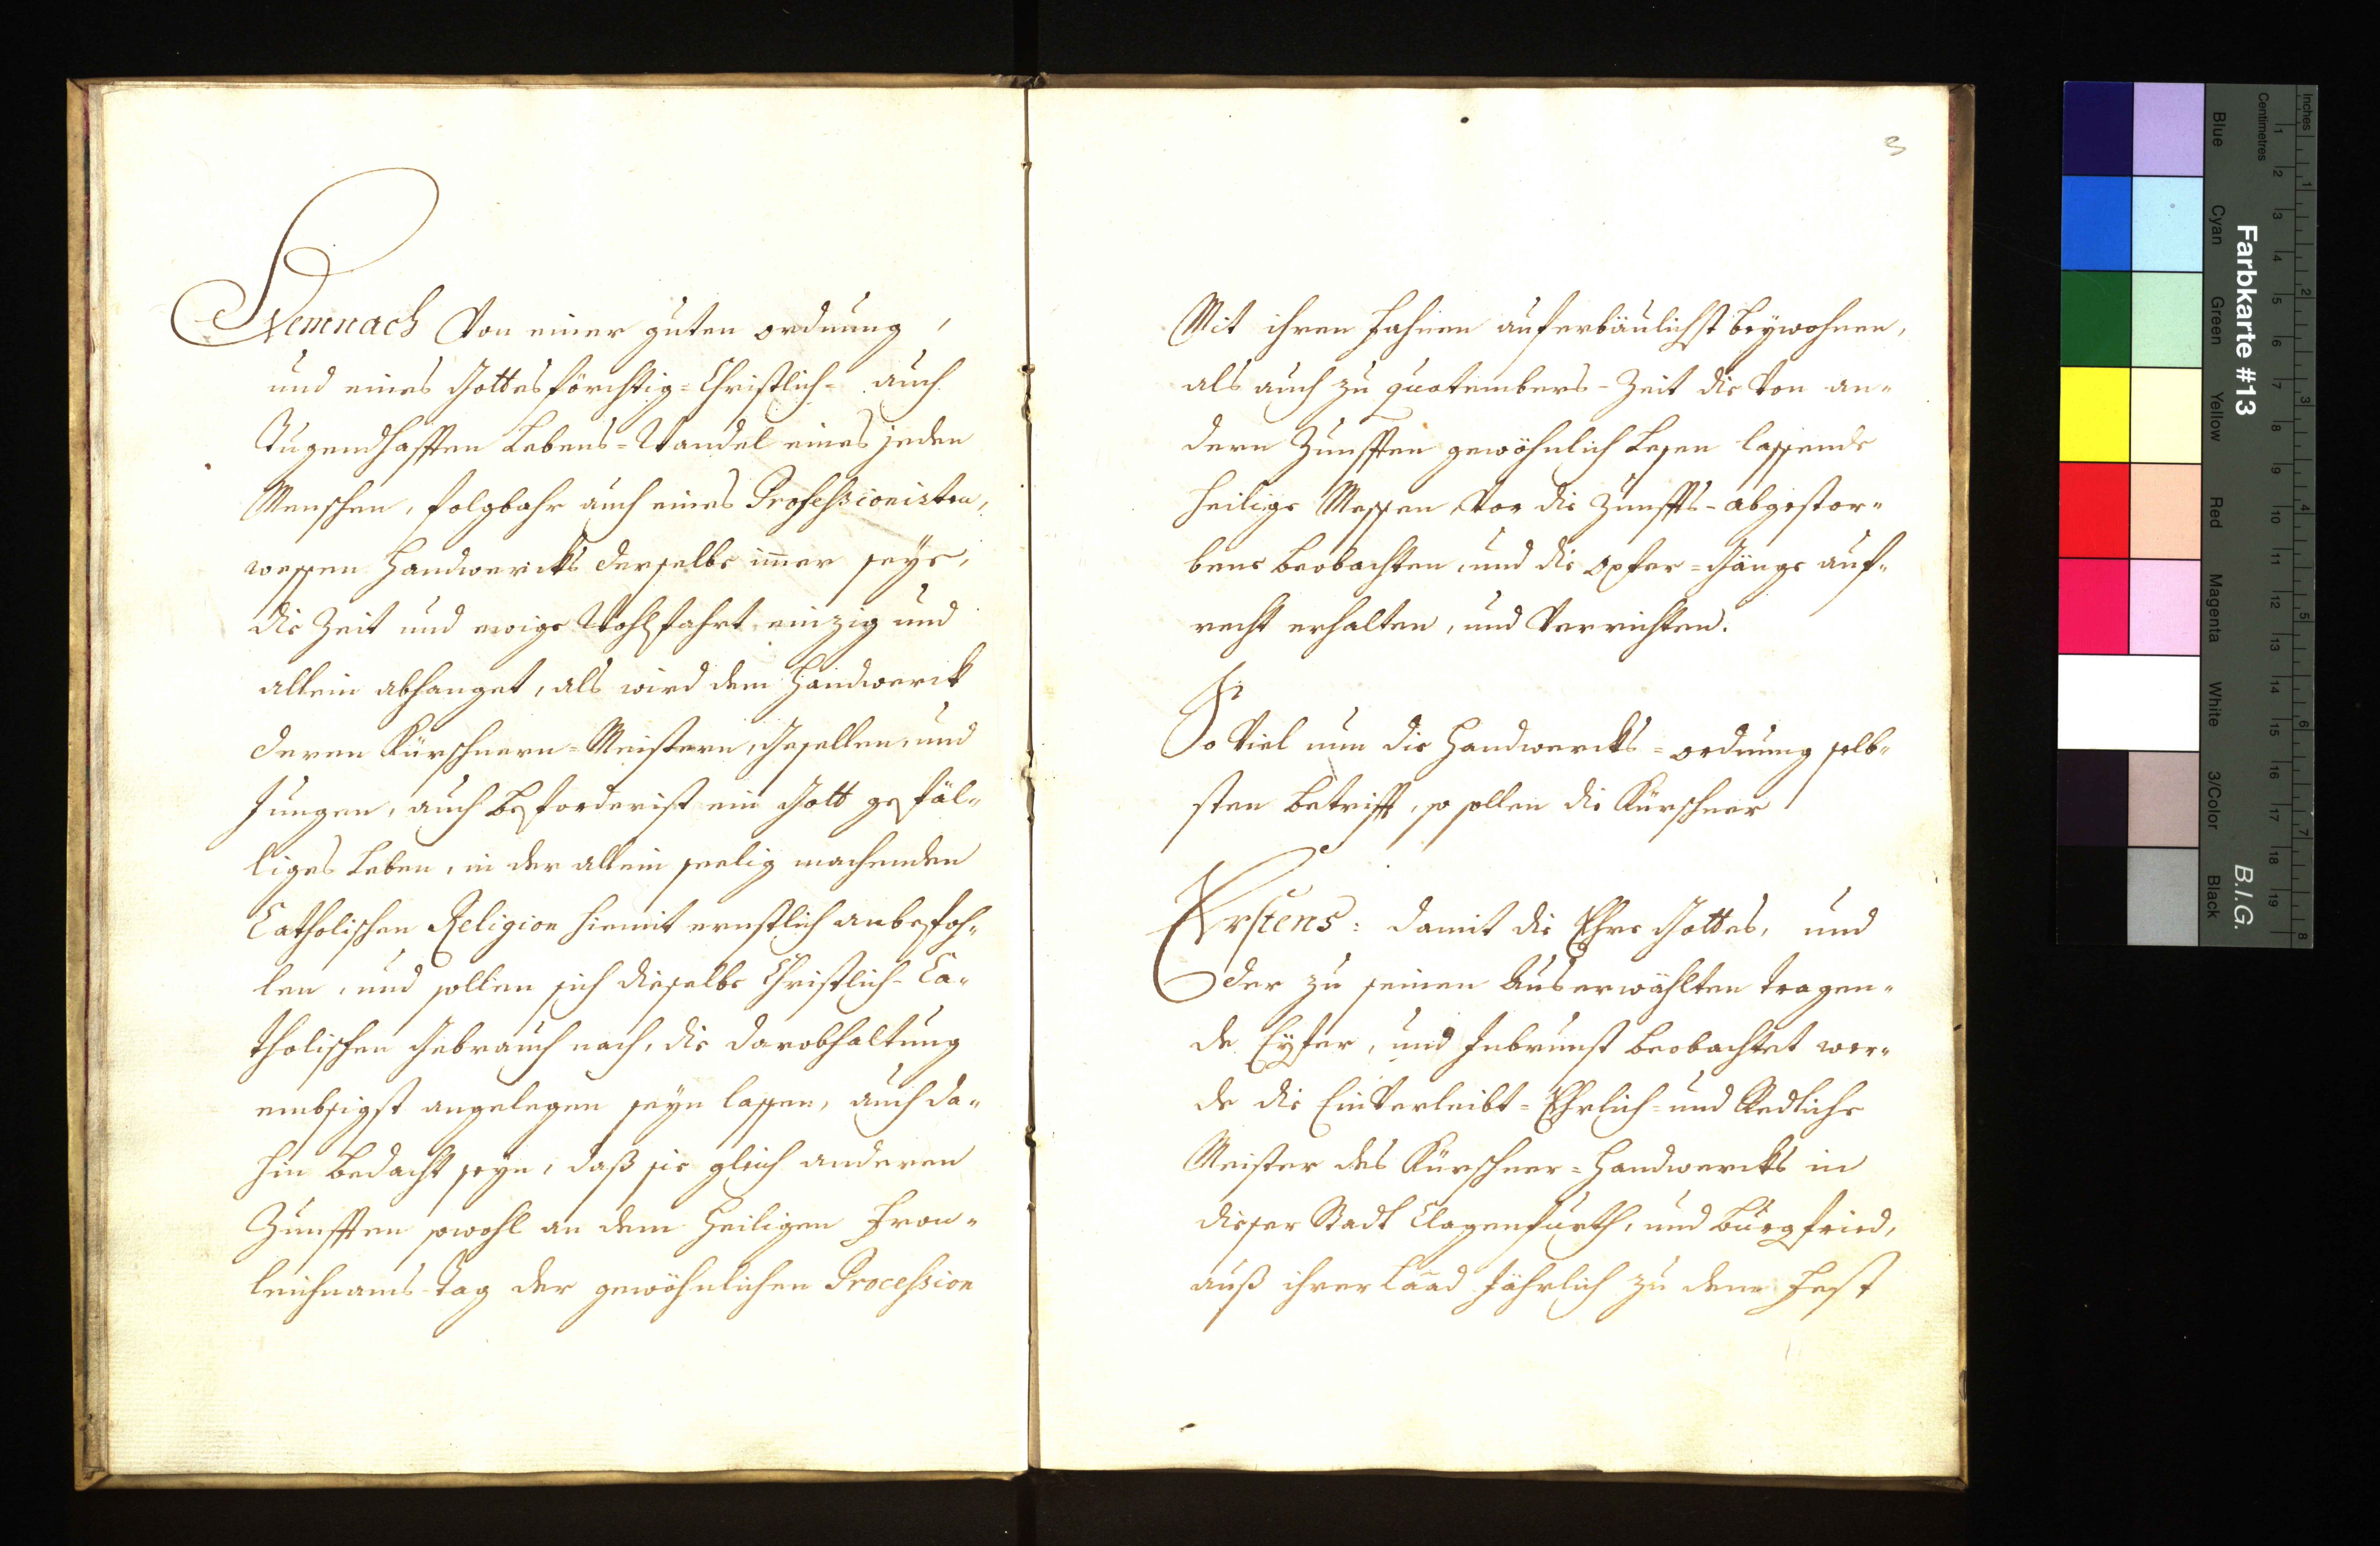 Demnach Von einer guten ordnung,
und eines Gottesförchtig-Christlich- auch
Tugendhafften Lebens-Wandel eines jeden
Menschen, folgbahr auch eines Professionisten,
wessen Handwercks derselbe im̄er seye,
die Zeit und ewige Wohlfahrt einzig und
allein abhanget, als wird dem Handwerck
deren Kürschnern-Meistern, Gesellen, und
Jungen, auch beforderist ein Gott gefäl-
liges Leben, in der allein seelig machenden
Catholischen Religion hiemit ernstlich anbefoh-
len, und sollen sich dieselbe Christlich-Ca-
tholischen Gebrauch nach, die darobhaltung
embsigst angelegen seyn lassen, auch da-
hin bedacht seyn, daß sie gleich anderen
Zunfften sowohl an dem Heiligen Fron-
leichnams-Tag der gewöhnlichen Procession
3
Mit ihren Fahnen auferbäulichst beywohnen,
als auch zu quotembers-Zeit die Von an-
dern Zunfften gewöhnlich Lesen lassende
Heilige Messen Vor die Zunffts-abgestor-
bene beobachten, und die Opfer-Gänge auf-
recht erhalten, und Verrichten.
So Viel nun die Handwercks-ordnung selb-
sten betrifft, so sollen die Kürschner
Erstens: damit die Ehre Gottes, und
der zu seinen Auserwählten tragen-
de Eyfer, und Inbrunst beobachtet wer-
de die EinVerleibt-Ehrlich-und Redliche
Meister des Kürschner-Handwercks in
dieser Stadt Clagenfurth, und Burgfried,
auß ihrer Laad Jährlich zu dem Fest
Farbkarte #13
B.I.G.
Inches
Centimetres
Blue
Cyan
Green
Yellow
Red
Magenta
White
3/Color
Black
1 2 3 4 5 6 7 8 9 10 11 12 13 14 15 16 17 18 19
1 2 3 4 5 6 7 8